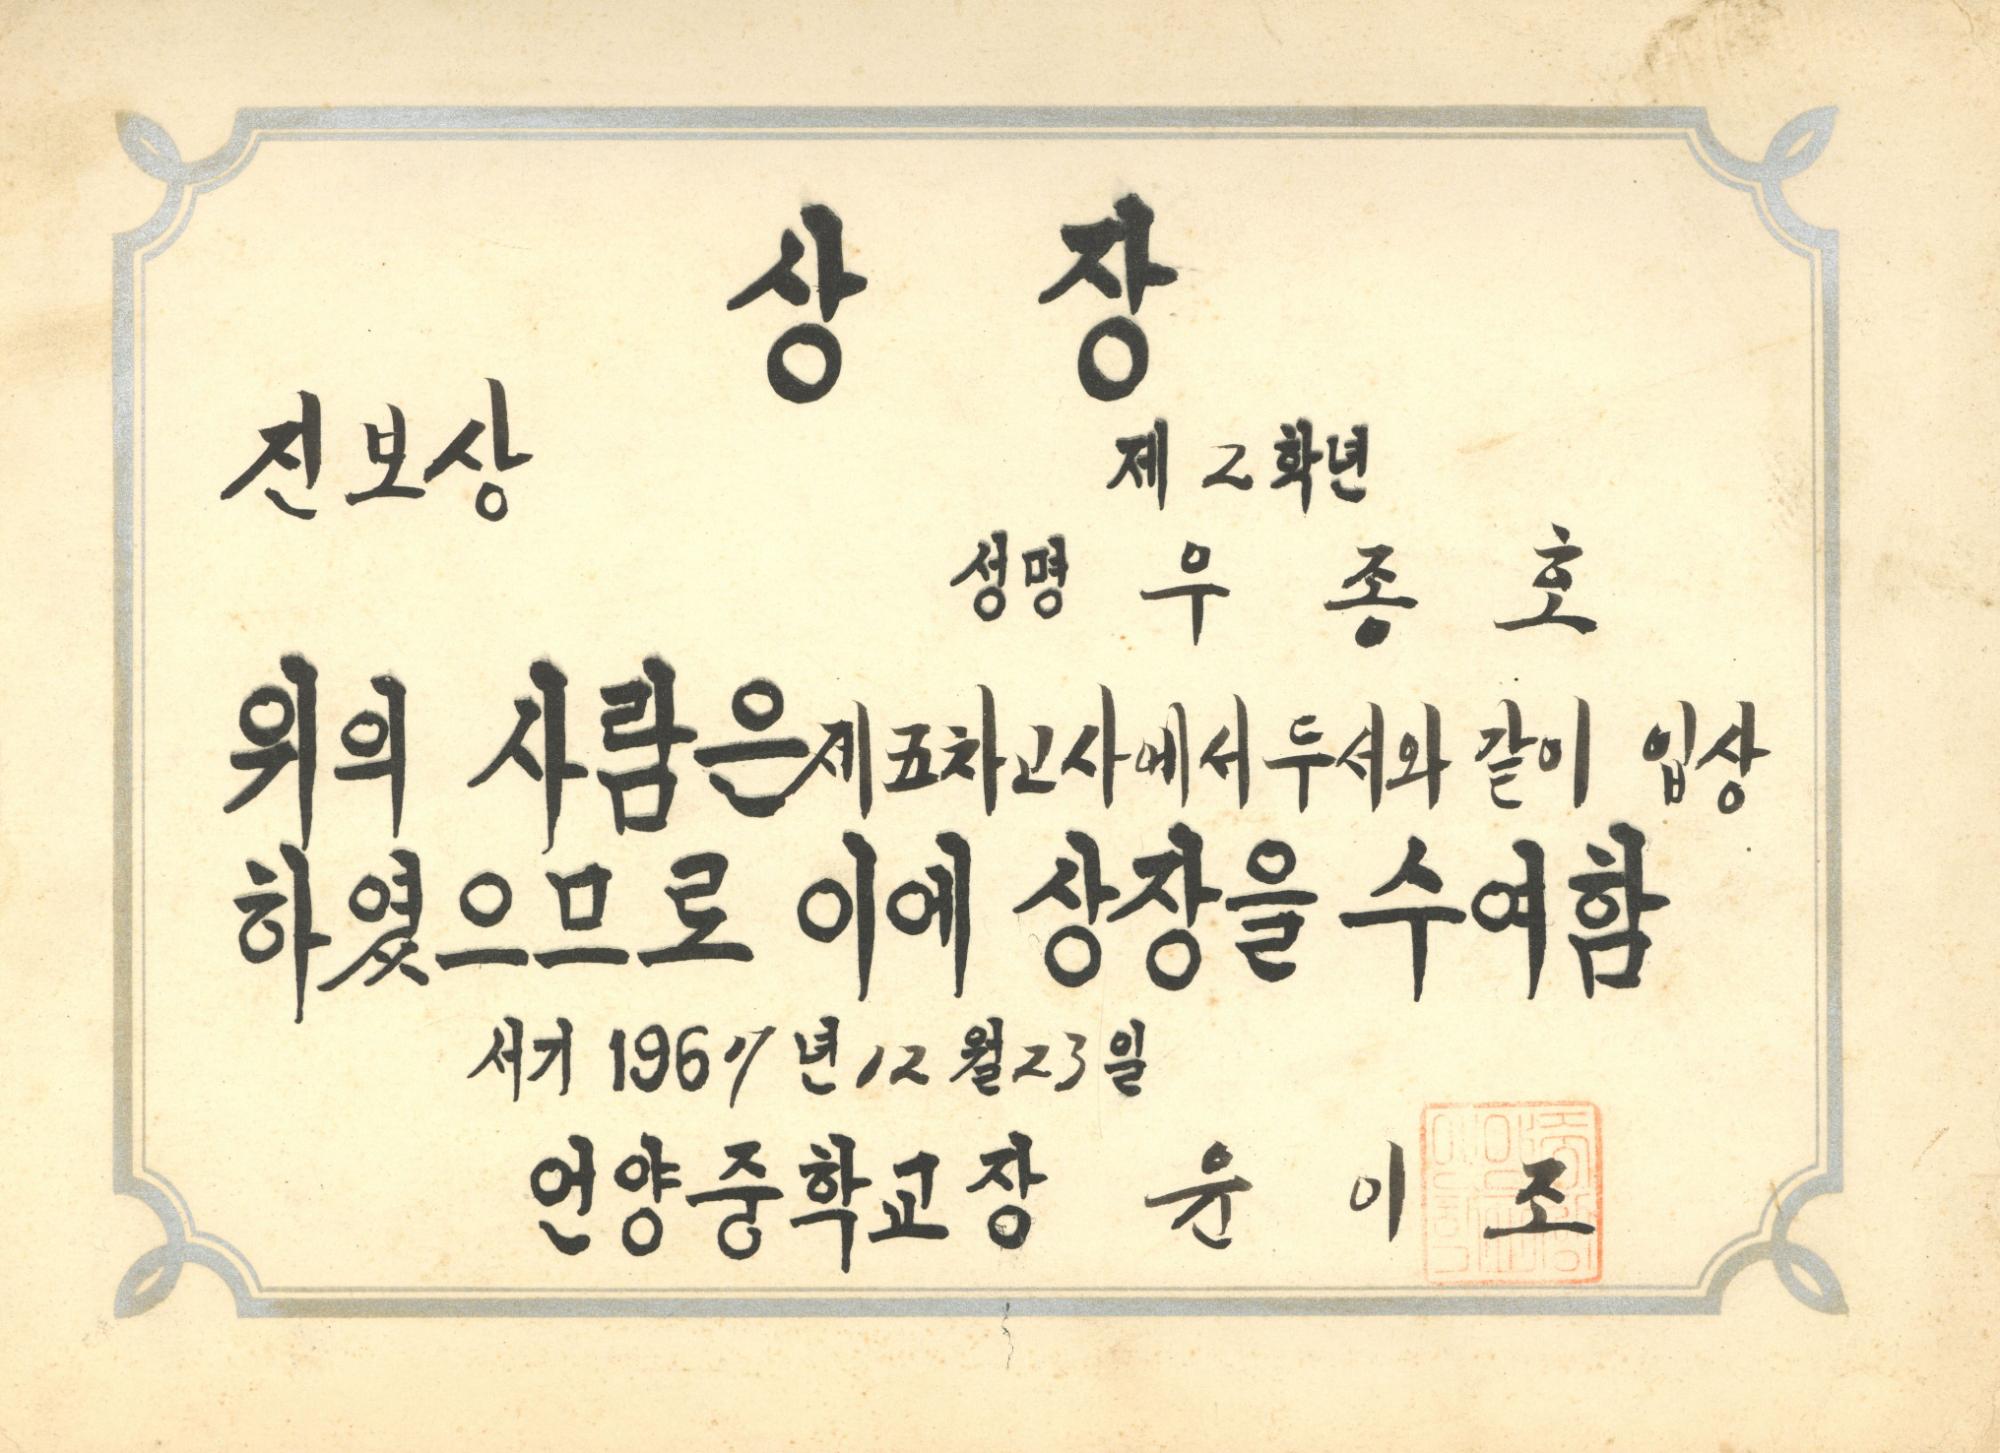 상 장
진보상
제 2 학년
성명 우 종 호
위의 사람은 제五차고사에서 두서와 같이 입상
하였으므로 이에 상장을 수여함
서기 1967년 12월 23일
언양중학교장 윤 이 조